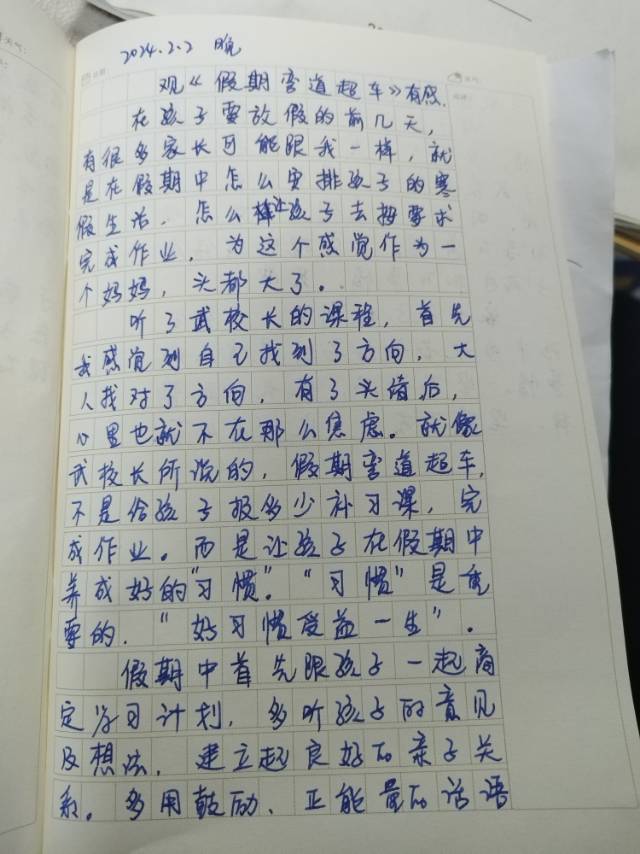 2024.2.2 晚
观《假期弯道超车》有感.
在孩子要放假的前几天,
有很多家长可能跟我一样, 就
是在假期中怎么安排孩子的寒
假生活. 怎么让孩子去按要求
完成作业. 为这个感觉作为一
个妈妈, 头都大了.
听了武校长的课程, 首先
我感觉到自己找到了方向. 大
人找对了方向. 有了头绪后,
心里也就不在那么焦虑。就像
武校长所说的, 假期弯道超车,
不是给孩子报多少补习课, 完
成作业。而是让孩子在假期中
养成好的"习惯". "习惯"是重
要的. "好习惯受益一生".
假期中首先跟孩子一起商
定学习计划, 多听孩子的意见
及想法, 建立起良好的亲子关
系。多用鼓励、正能量的话语